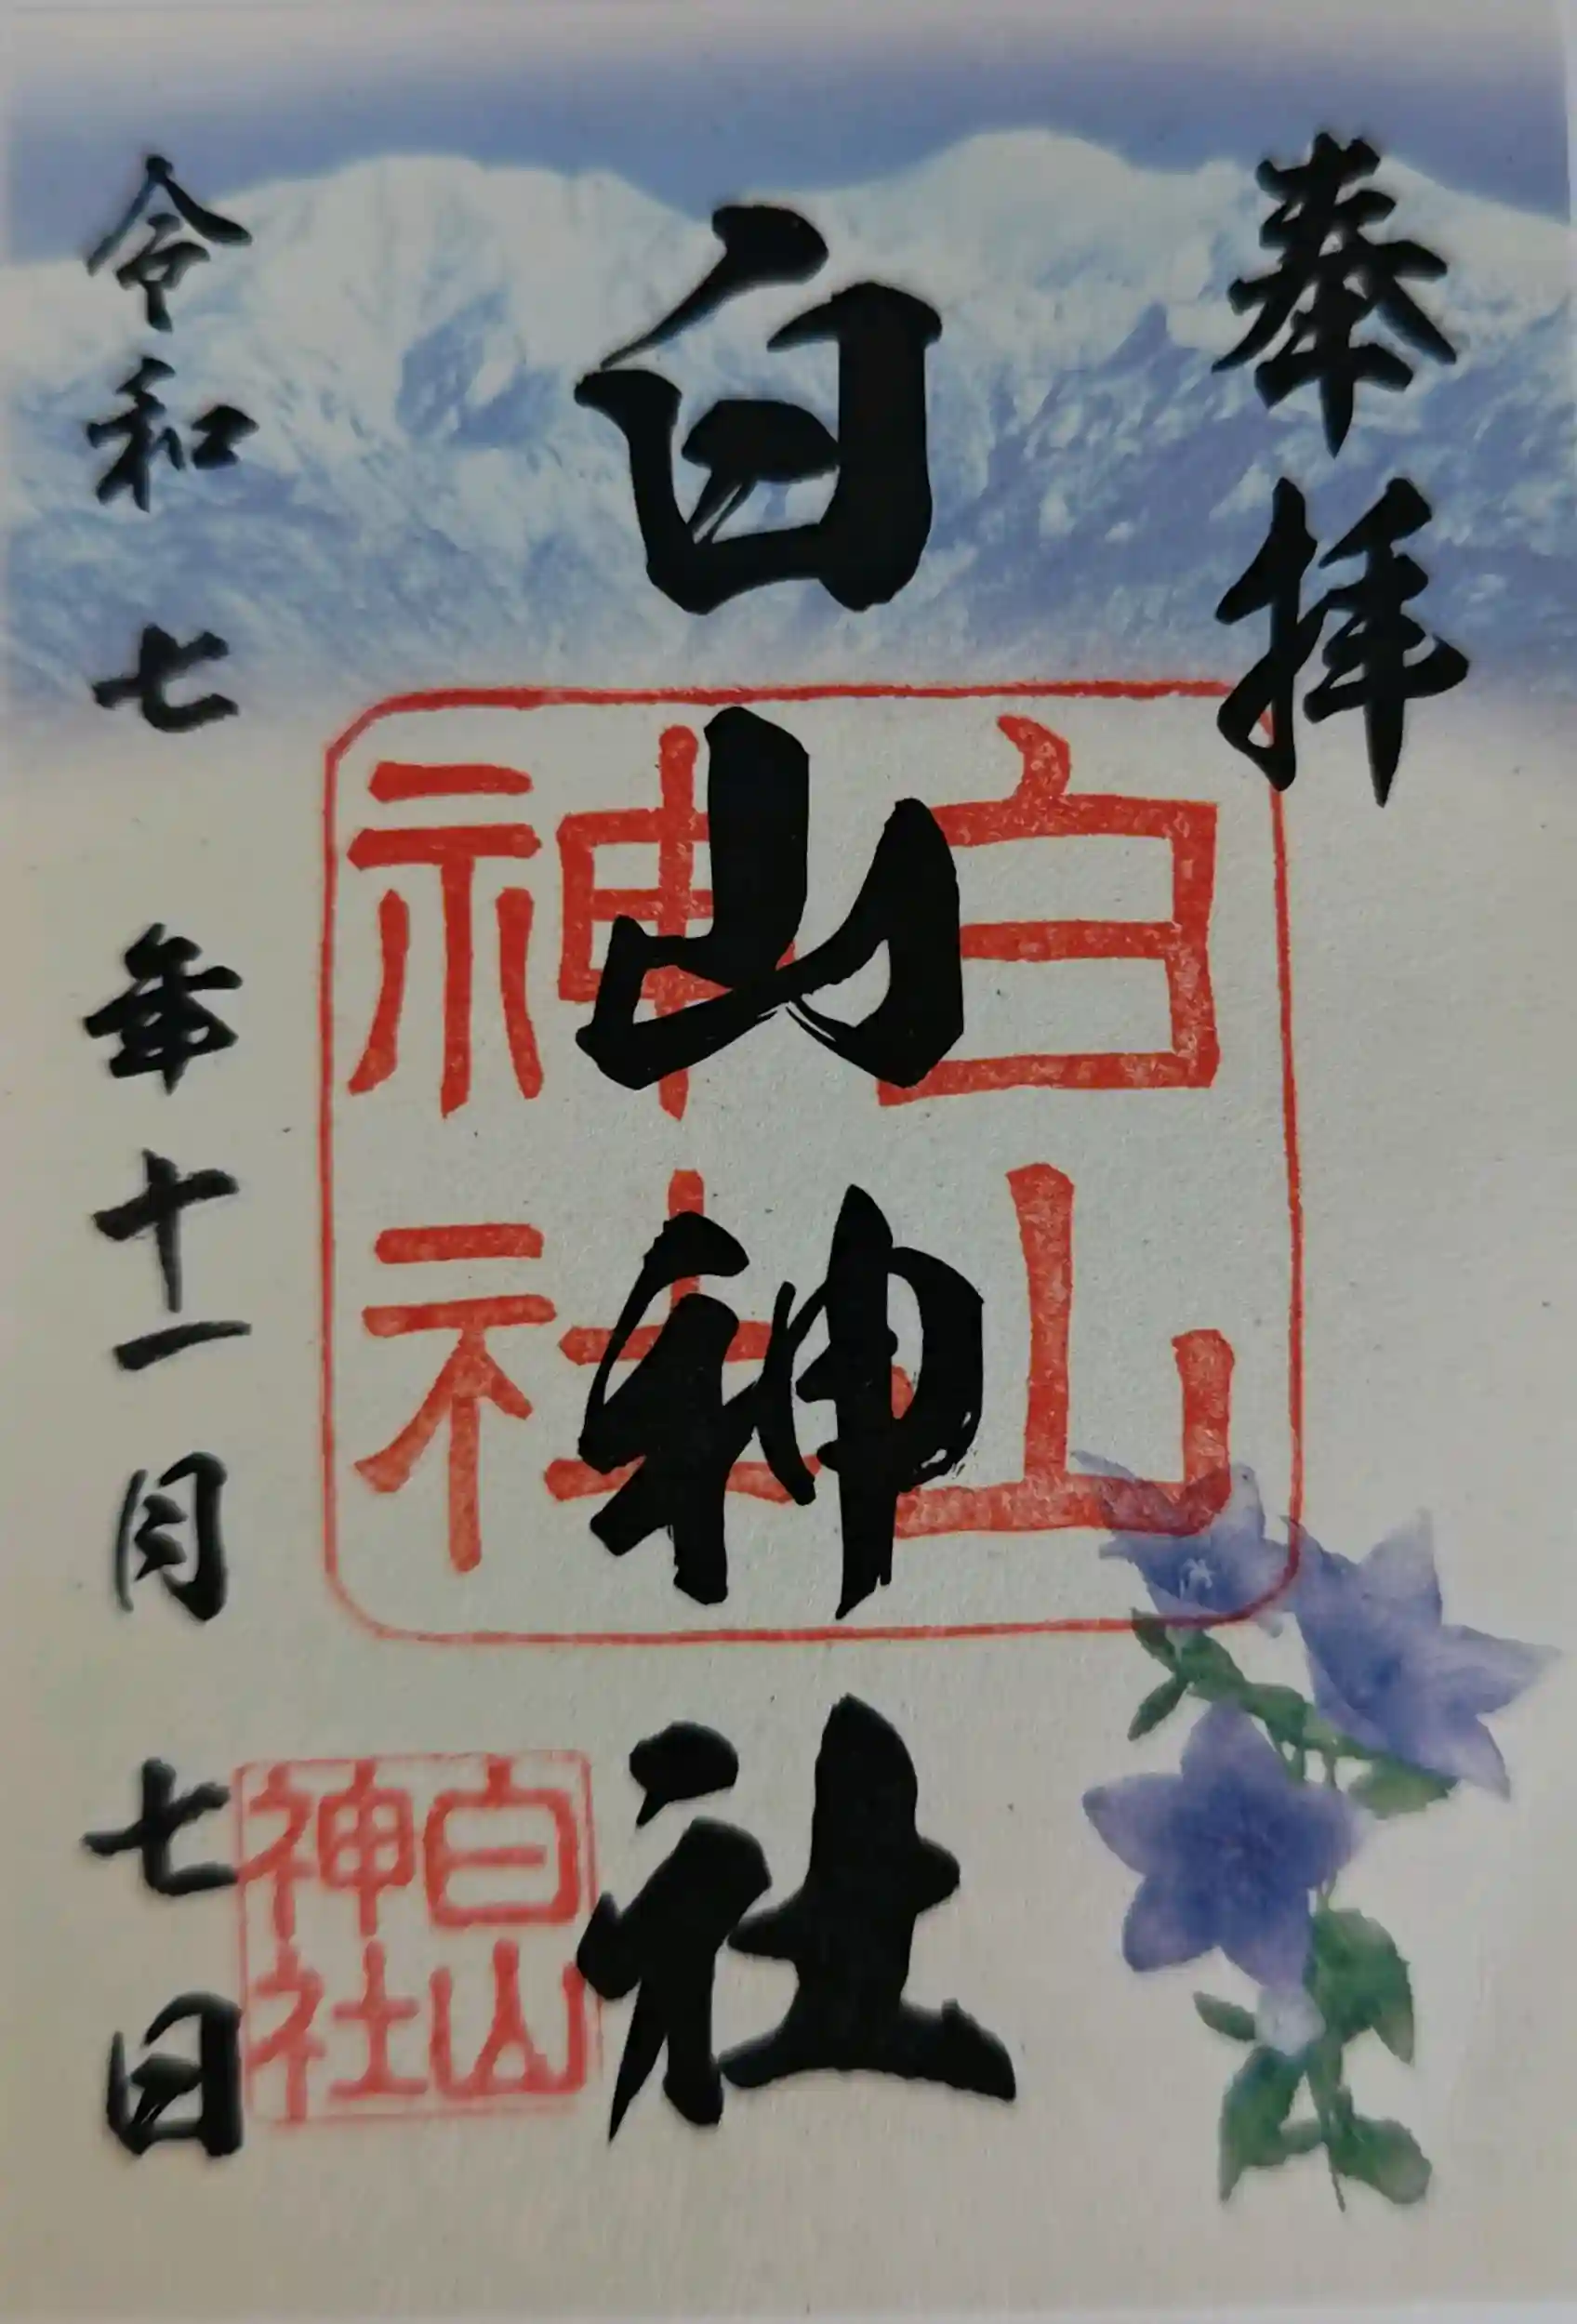 奉拝
白山神社
白山神社
白山神社
令和七年十一月七日